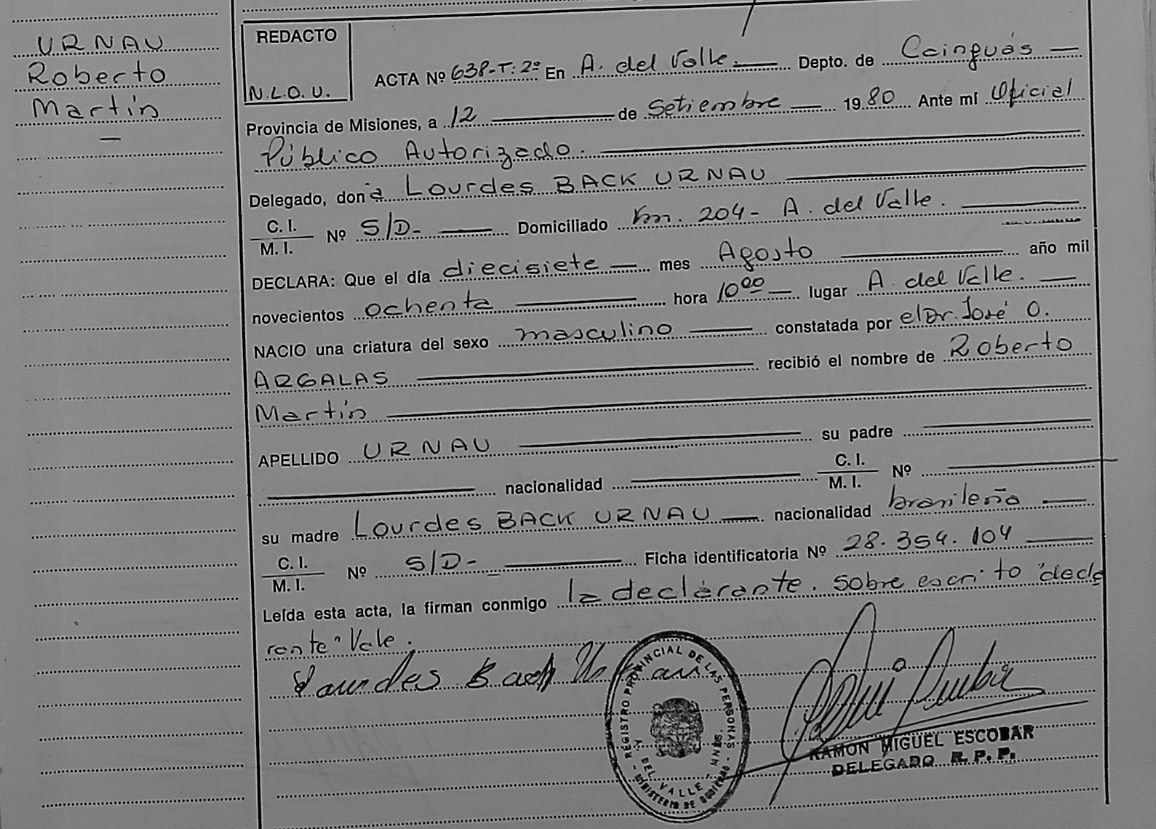 URNAU
Roberto
Martín
—
REDACTO
N.L.O.U.
ACTA Nº 638-T:2º En A. del Valle. Depto. de Cainguás
Provincia de Misiones, a 12 de Setiembre 1980 Ante mí Oficial
Público Autorizado.
Delegado, doña Lourdes BACK URNAU
C. I.
M. I. Nº S/D- Domiciliado Km. 204- A. del Valle.
DECLARA: Que el día diecisiete mes Agosto año mil
novecientos ochenta hora 10⁰⁰ lugar A. del Valle.
NACIO una criatura del sexo masculino constatada por el Dr. José O.
ARGALAS recibió el nombre de Roberto
Martín
APELLIDO URNAU su padre
nacionalidad C. I.
M. I. Nº
su madre Lourdes BACK URNAU nacionalidad brasileña
C. I.
M. I. Nº S/D- Ficha identificatoria Nº 28.354.104
Leída esta acta, la firman conmigo la declarante. Sobre escrito "decla
rante" Vale.
Lourdes Back Urnau
REGISTRO PROVINCIAL DE LAS PERSONAS
A. DEL VALLE - MNES
MINISTERIO DE GOBIERNO
RAMON MIGUEL ESCOBAR
DELEGADO R. P. P.